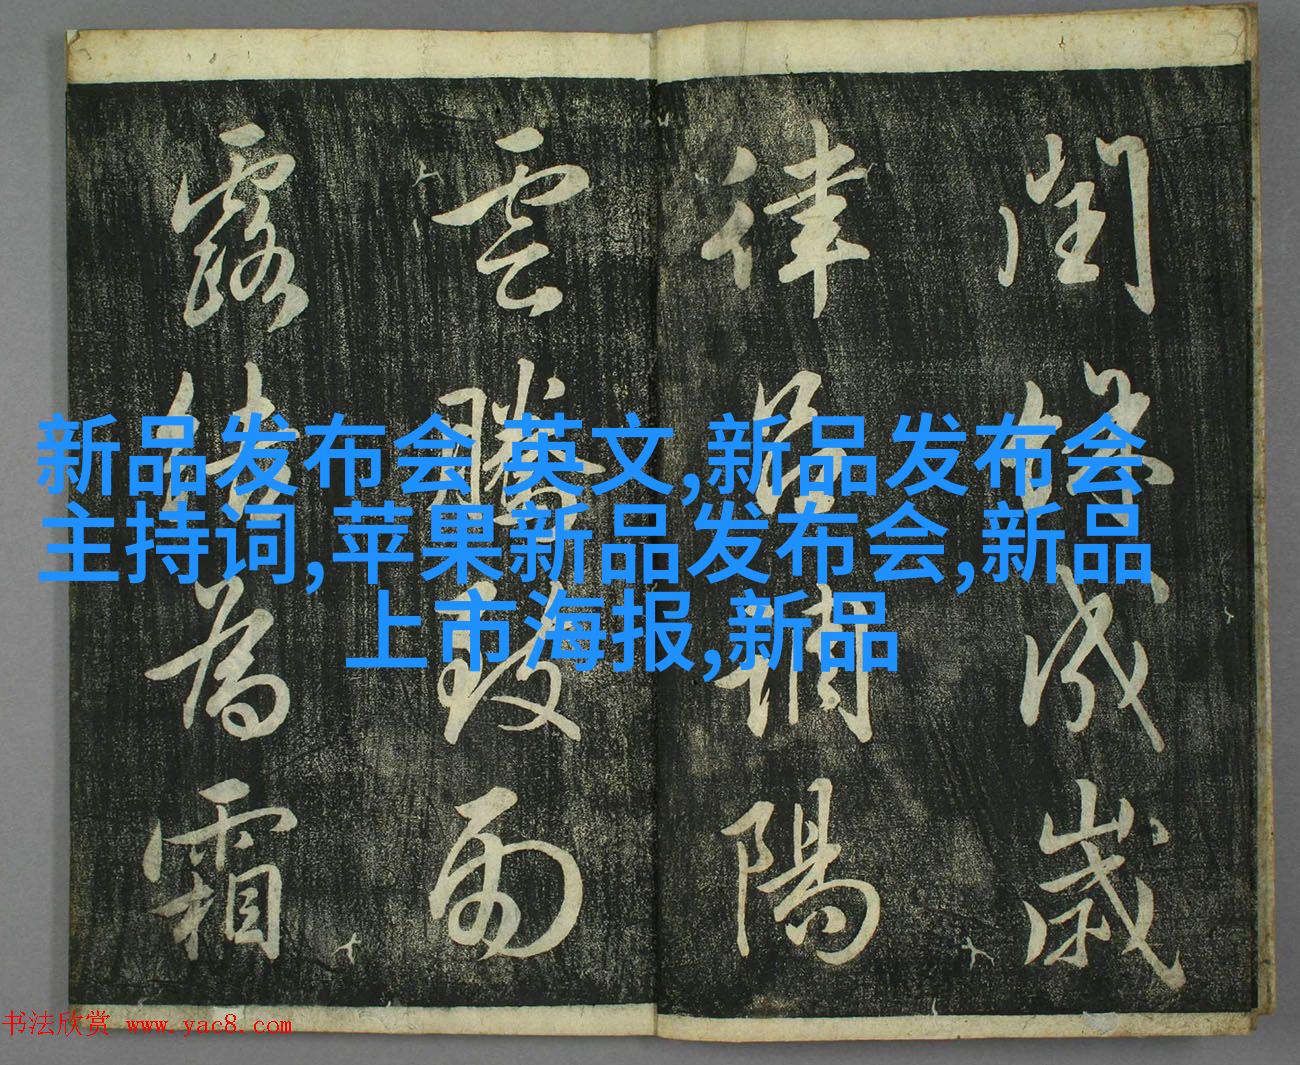 閏餘成歲
律呂調陽
雲騰致雨
露結為霜
新品发布会 英文,新品发布会
主持词,苹果新品发布会,新品
上市海报,新品
书法欣赏 www.yac8.com